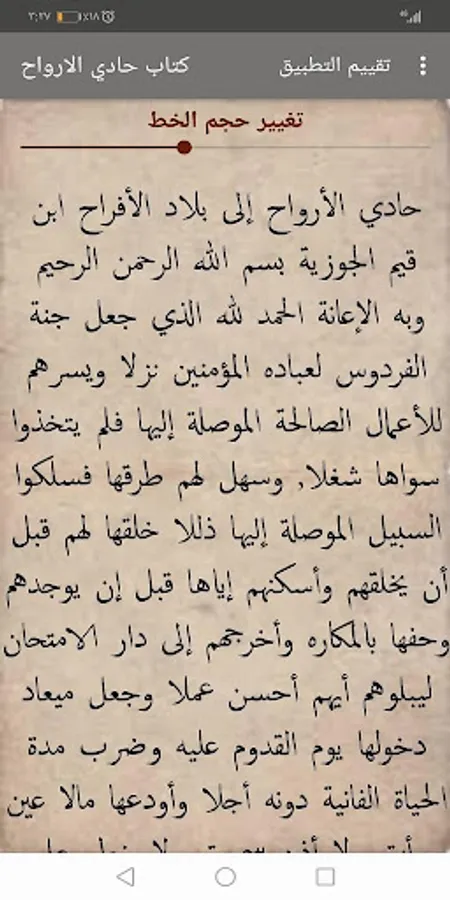 ٣:٢٧ ٪١٨
كتاب حادي الارواح تقييم التطبيق
تغيير حجم الخط
حادي الأرواح إلى بلاد الأفراح ابن
قيم الجوزية بسم الله الرحمن الرحيم
وبه الإعانة الحمد لله الذي جعل جنة
الفردوس لعباده المؤمنين نزلا ويسرهم
للأعمال الصالحة الموصلة إليها فلم يتخذوا
سواها شغلا, وسهل لهم طرقها فسلكوا
السبيل الموصلة إليها ذللا خلقها لهم قبل
أن يخلقهم وأسكنهم إياها قبل إن يوجدهم
وحفها بالمكاره وأخرجهم إلى دار الامتحان
ليبلوهم أيهم أحسن عملا وجعل ميعاد
دخولها يوم القدوم عليه وضرب مدة
الحياة الفانية دونه أجلا وأودعها مالا عين